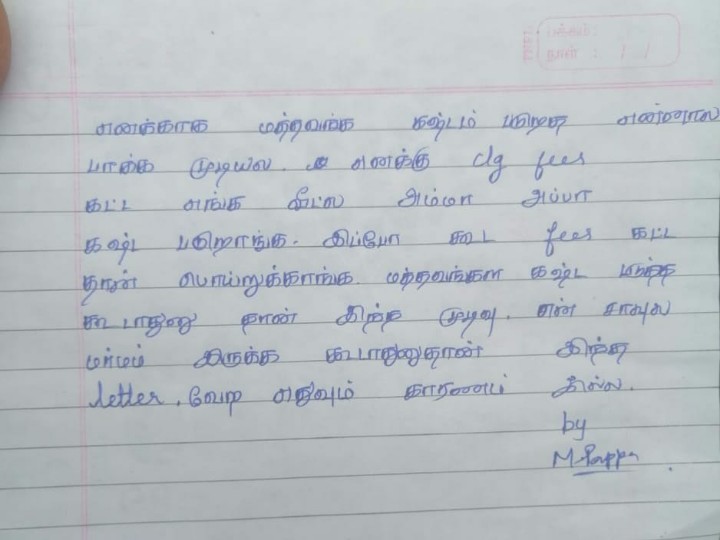 நாள் : / /
எனக்காக மத்தவங்க கஷ்டம் படுறத என்னால
பாக்க முடியல. எனக்கு clg fees
கட்ட எங்க வீட்ல அம்மா அப்பா
கஷ்ட படுறாங்க. இப்போ கூட fees கட்ட
தான் போய்ருக்காங்க. மத்தவங்கள கஷ்ட படுத்த
கூடாதுனு தான் இந்த முடிவு. என் சாவுல
மர்மம் இருக்க கூடாதுனுதான் இந்த
letter. வேற எதுவும் காரணம் இல்ல.
by
M. Pappa